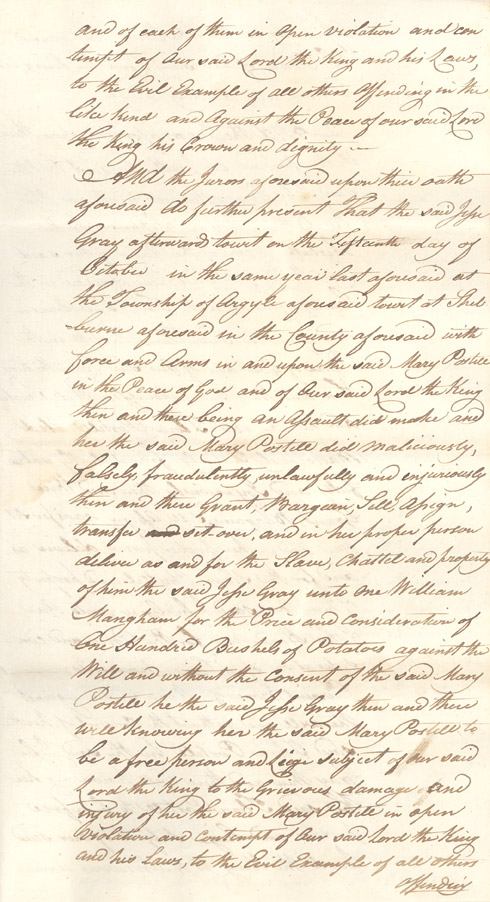 and of each of them in open violation and con
tempt of Our said Lord the King and his Laws,
to the Evil Example of all others Offending in the
like kind and Against the Peace of our said Lord
the King his Crown and dignity —
And the Jurors aforesaid upon their oath
aforesaid do further present That the said Jesse
Gray afterward towit on the Fifteenth day of
October in the same year last aforesaid at
the Township of Argyle aforesaid towit at Shel
burne aforesaid in the County aforesaid with
force and Arms in and upon the said Mary Postill
in the Peace of God and of Our said Lord the King
then and there being an Assault did make and
her the said Mary Postill did Maliciously,
falsely, fraudulently, unlawfully and injuriously
then and there Grant, Bargain, Sell, Assign,
transfer and set over, and in her proper person
deliver as and for the Slave, Chattel and property
of him the said Jesse Gray unto One William
Mangham for the Price and Consideration of
One Hundred Bushels of Potatoes against the
Will and without the Consent of the said Mary
Postill he the said Jesse Gray then and there
well knowing her the said Mary Postill to
be a free person and Liege subject of Our said
Lord the King to the Grievous damage And
injury of her the said Mary Postill in open
Violation and Contempt of Our said Lord the King
and his Laws, to the Evil Example of all others